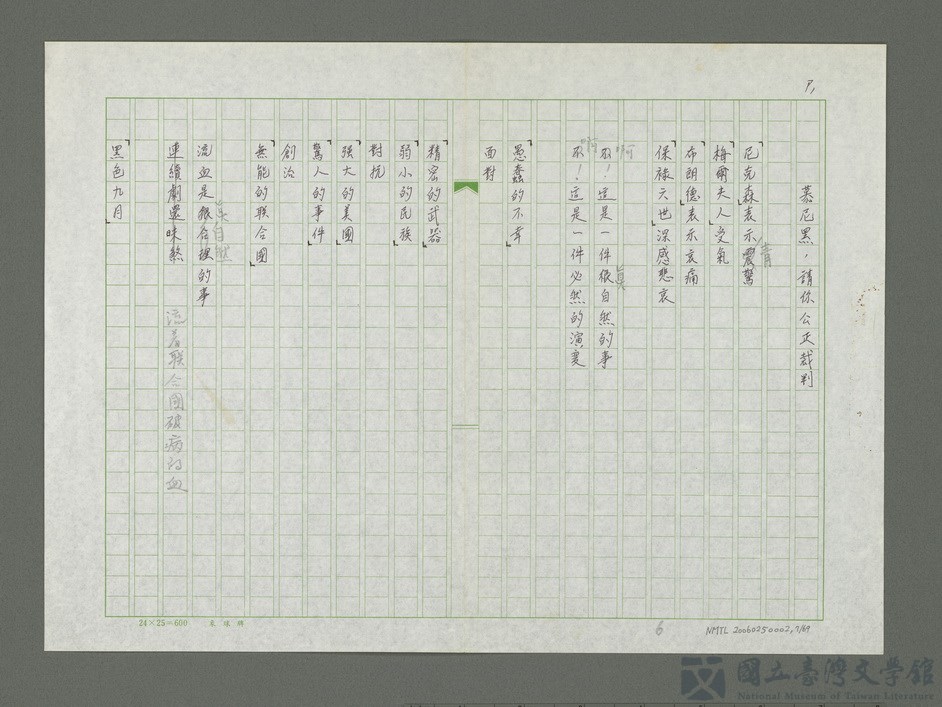 P1
慕尼黑，請你公正裁判
「尼克森」表示震驚
青
「梅爾夫人」受氣
「布朗德」表示哀痛
「保祿六世」深感悲哀
啊
不！這是一件很自然的事
真
啊
不！這是一件必然的演變
「愚蠢的不幸」
面對
「精密的武器」
「弱小的民族」
對抗
「强大的美國」
「驚人的事件」
創治
「無能的联合國」
真自然
流血是很合理的事
連續劇還味煞
流着联合國破病的血
「黑色九月」
24×25=600
6
NMTL 20060250002,7/69
國立臺灣文學館
National Museum of Taiwan Literature